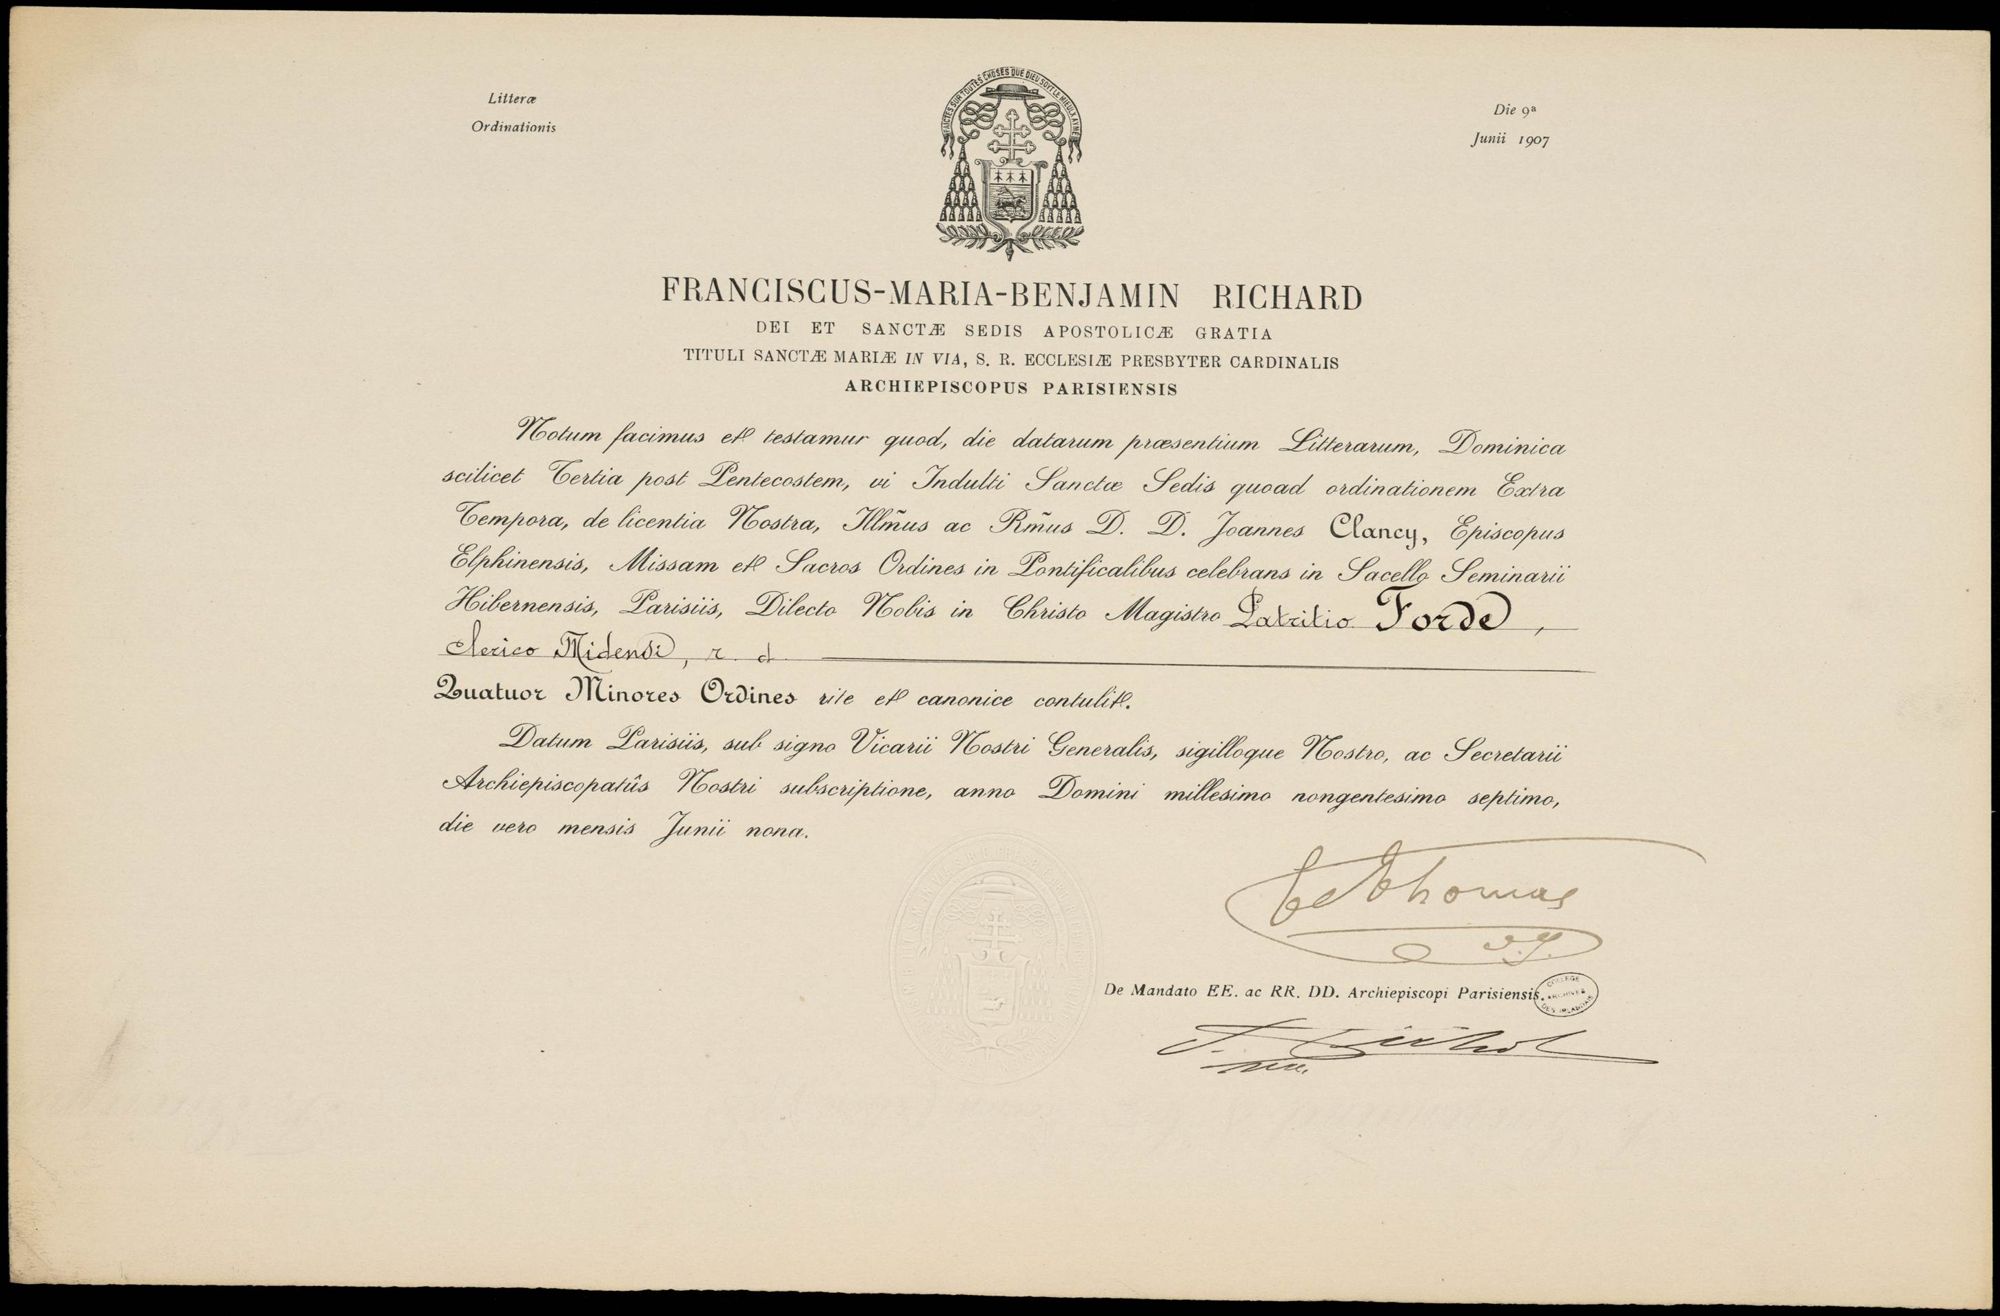 Litteræ
Ordinationis
Die 9ª
Junii 1907
FAICTES SUR TOUTES CHOSES QUE DIEU SOIT LE MIEULX AYMÉ
FRANCISCUS-MARIA-BENJAMIN RICHARD
DEI ET SANCTÆ SEDIS APOSTOLICÆ GRATIA
TITULI SANCTÆ MARIÆ IN VIA, S. R. ECCLESIÆ PRESBYTER CARDINALIS
ARCHIEPISCOPUS PARISIENSIS
Notum facimus et testamur quod, die datarum præsentium Litterarum, Dominica
scilicet Tertia post Pentecostem, vi Indulti Sanctæ Sedis quoad ordinationem Extra
Tempora, de licentia Nostra, Illm̃us ac Rm̃us D. D. Joannes Clancy, Episcopus
Elphinensis, Missam et Sacros Ordines in Pontificalibus celebrans in Sacello Seminarii
Hibernensis, Parisiis, Dilecto Nobis in Christo Magistro Patritio Forde,
clerico Midensi, r. d.
Quatuor Minores Ordines rite et canonice contulit.
Datum Parisiis, sub signo Vicarii Nostri Generalis, sigilloque Nostro, ac Secretarii
Archiepiscopatûs Nostri subscriptione, anno Domini millesimo nongentesimo septimo,
die vero mensis Junii nona.
Thomas
v.g.
De Mandato EE. ac RR. DD. Archiepiscopi Parisiensis.
COLLEGE
ARCHIVES
DES IRLANDAIS